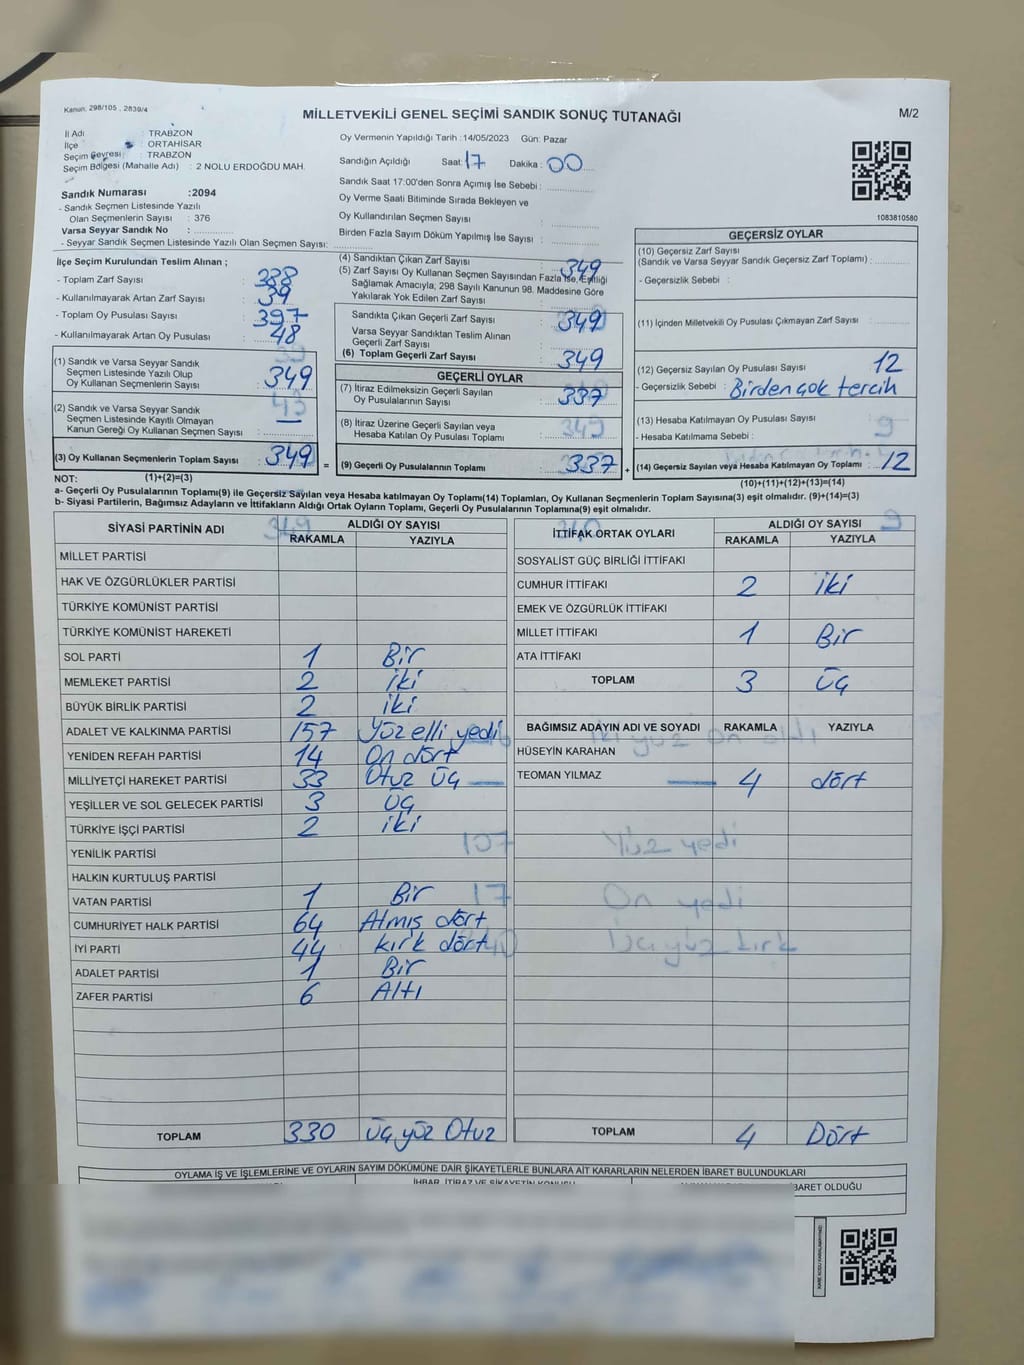 Kanun, 298/105 , 2839/4
MİLLETVEKİLİ GENEL SEÇİMİ SANDIK SONUÇ TUTANAĞI
M/2
İl Adı : TRABZON
İlçe : ORTAHİSAR
Seçim Çevresi : TRABZON
Seçim Bölgesi (Mahalle Adı) : 2 NOLU ERDOĞDU MAH.
Sandık Numarası :2094
- Sandık Seçmen Listesinde Yazılı
Olan Seçmenlerin Sayısı : 376
Varsa Seyyar Sandık No :
- Seyyar Sandık Seçmen Listesinde Yazılı Olan Seçmen Sayısı:
Oy Vermenin Yapıldığı Tarih :14/05/2023 Gün: Pazar
Sandığın Açıldığı Saat: 17 Dakika : 00
Sandık Saat 17:00'den Sonra Açımış İse Sebebi :
Oy Verme Saati Bitiminde Sırada Bekleyen ve
Oy Kullandırılan Seçmen Sayısı :
Birden Fazla Sayım Döküm Yapılmış İse Sayısı :
1083810580
İlçe Seçim Kurulundan Teslim Alınan ;
- Toplam Zarf Sayısı : 388
- Kullanılmayarak Artan Zarf Sayısı : 39
- Toplam Oy Pusulası Sayısı : 397
- Kullanılmayarak Artan Oy Pusulası : 48
(1) Sandık ve Varsa Seyyar Sandık
Seçmen Listesinde Yazılı Olup
Oy Kullanan Seçmenlerin Sayısı : 349
(2) Sandık ve Varsa Seyyar Sandık
Seçmen Listesinde Kayıtlı Olmayan
Kanun Gereği Oy Kullanan Seçmen Sayısı : —
(3) Oy Kullanan Seçmenlerin Toplam Sayısı : 349 =
(4) Sandıktan Çıkan Zarf Sayısı : 349
(5) Zarf Sayısı Oy Kullanan Seçmen Sayısından Fazla İse, Eşitliği
Sağlamak Amacıyla, 298 Sayılı Kanunun 98. Maddesine Göre
Yakılarak Yok Edilen Zarf Sayısı :
Sandıkta Çıkan Geçerli Zarf Sayısı : 349
Varsa Seyyar Sandıktan Teslim Alınan
Geçerli Zarf Sayısı :
(6) Toplam Geçerli Zarf Sayısı : 349
GEÇERLİ OYLAR
(7) İtiraz Edilmeksizin Geçerli Sayılan
Oy Pusulalarının Sayısı : 337
(8) İtiraz Üzerine Geçerli Sayılan veya
Hesaba Katılan Oy Pusulası Toplamı : 349
(9) Geçerli Oy Pusulalarının Toplamı : 337 +
GEÇERSİZ OYLAR
(10) Geçersiz Zarf Sayısı
(Sandık ve Varsa Seyyar Sandık Geçersiz Zarf Toplamı) :
- Geçersizlik Sebebi :
(11) İçinden Milletvekili Oy Pusulası Çıkmayan Zarf Sayısı :
(12) Geçersiz Sayılan Oy Pusulası Sayısı : 12
- Geçersizlik Sebebi : Birden çok tercih
(13) Hesaba Katılmayan Oy Pusulası Sayısı : 9
- Hesaba Katılmama Sebebi :
(14) Geçersiz Sayılan veya Hesaba Katılmayan Oy Toplamı : 12
NOT: (1)+(2)=(3)
(10)+(11)+(12)+(13)=(14)
a- Geçerli Oy Pusulalarının Toplamı(9) ile Geçersiz Sayılan veya Hesaba katılmayan Oy Toplamı(14) Toplamları, Oy Kullanan Seçmenlerin Toplam Sayısına(3) eşit olmalıdır. (9)+(14)=(3)
b- Siyasi Partilerin, Bağımsız Adayların ve İttifakların Aldığı Ortak Oyların Toplamı, Geçerli Oy Pusulalarının Toplamına(9) eşit olmalıdır.
SİYASİ PARTİNİN ADI ALDIĞI OY SAYISI
RAKAMLA YAZIYLA
MİLLET PARTİSİ
HAK VE ÖZGÜRLÜKLER PARTİSİ
TÜRKİYE KOMÜNİST PARTİSİ
TÜRKİYE KOMÜNİST HAREKETİ
SOL PARTİ 1 Bir
MEMLEKET PARTİSİ 2 iki
BÜYÜK BİRLİK PARTİSİ 2 iki
ADALET VE KALKINMA PARTİSİ 157 Yüz elli yedi
YENİDEN REFAH PARTİSİ 14 On dört
MİLLİYETÇİ HAREKET PARTİSİ 33 Otuz üç
YEŞİLLER VE SOL GELECEK PARTİSİ 3 üç
TÜRKİYE İŞÇİ PARTİSİ 2 iki
YENİLİK PARTİSİ 107
HALKIN KURTULUŞ PARTİSİ
VATAN PARTİSİ 1 Bir 17
CUMHURİYET HALK PARTİSİ 64 Atmış dört
İYİ PARTİ 44 kırk dört
ADALET PARTİSİ 1 Bir
ZAFER PARTİSİ 6 Altı
TOPLAM 330 üç yüz Otuz
İTTİFAK ORTAK OYLARI ALDIĞI OY SAYISI 9
RAKAMLA YAZIYLA
SOSYALİST GÜÇ BİRLİĞİ İTTİFAKI
CUMHUR İTTİFAKI 2 iki
EMEK VE ÖZGÜRLÜK İTTİFAKI
MİLLET İTTİFAKI 1 Bir
ATA İTTİFAKI
TOPLAM 3 üç
BAĞIMSIZ ADAYIN ADI VE SOYADI RAKAMLA YAZIYLA
iki yüz On altı
HÜSEYİN KARAHAN
TEOMAN YILMAZ 4 dört
Yüz yedi
On yedi
İki yüz kırk
TOPLAM 4 Dört
OYLAMA İŞ VE İŞLEMLERİNE VE OYLARIN SAYIM DÖKÜMÜNE DAİR ŞİKAYETLERLE BUNLARA AİT KARARLARIN NELERDEN İBARET BULUNDUKLARI
İHBAR, İTİRAZ VE ŞİKAYETİN KONUSU
İBARET OLDUĞU